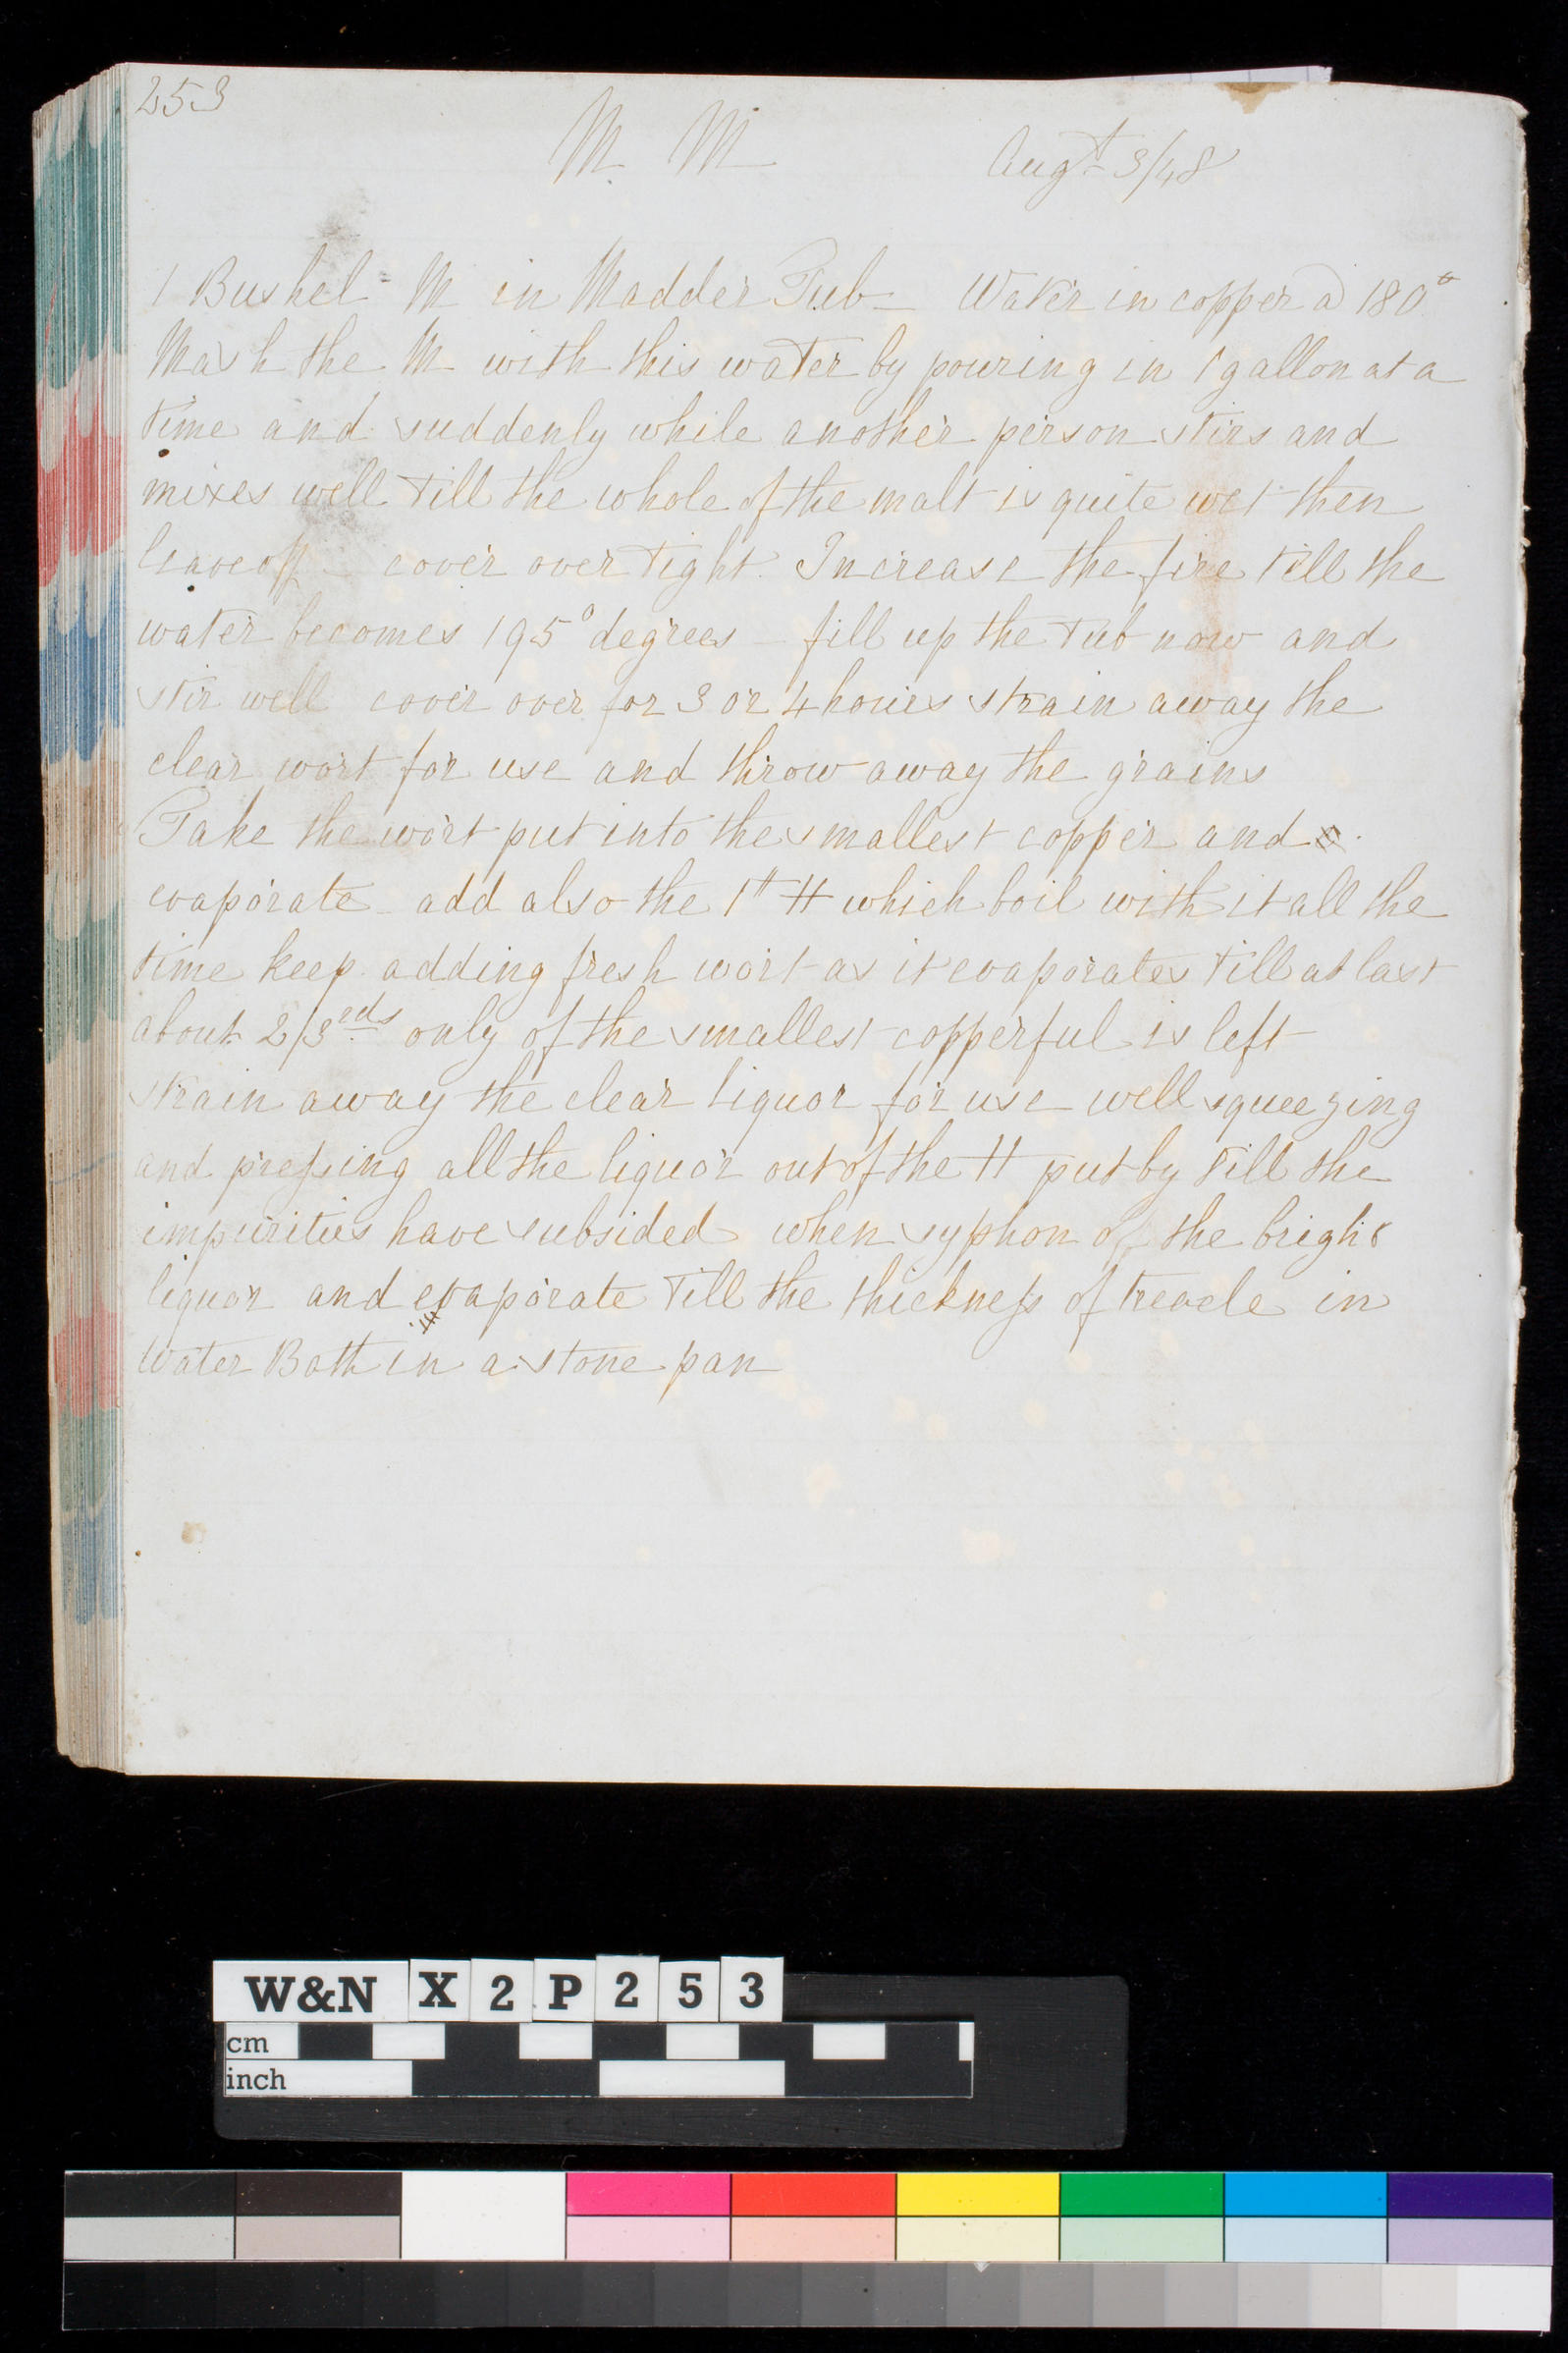 253
M. M Augt 3/48
1 Bushel = M in Madder Tub — Water in copper @ 180°
Mash the M with this water by pouring in 1 gallon at a
time and suddenly while another person stirs and
mixes well till the whole of the malt is quite wet then
leave off — cover over tight. Increase the fire till the
water becomes 195° degrees — fill up the tub now and
stir well cover over for 3 or 4 hours strain away the
clear wort for use and throw away the grains
Take the wort put into the smallest copper and
evaporate — add also the 1 H which boil with it all the
time keep adding fresh wort as it evaporates till at last
about 2/3rds only of the smallest copperful is left
strain away the clear liquor for use well squeezing
and pressing all the liquor out of the H put by till the
impurities have subsided when syphon of the bright
liquor and evaporate till the thickness of treacle in
Water Bath in a stone pan
W&N X2P253
cm
inch